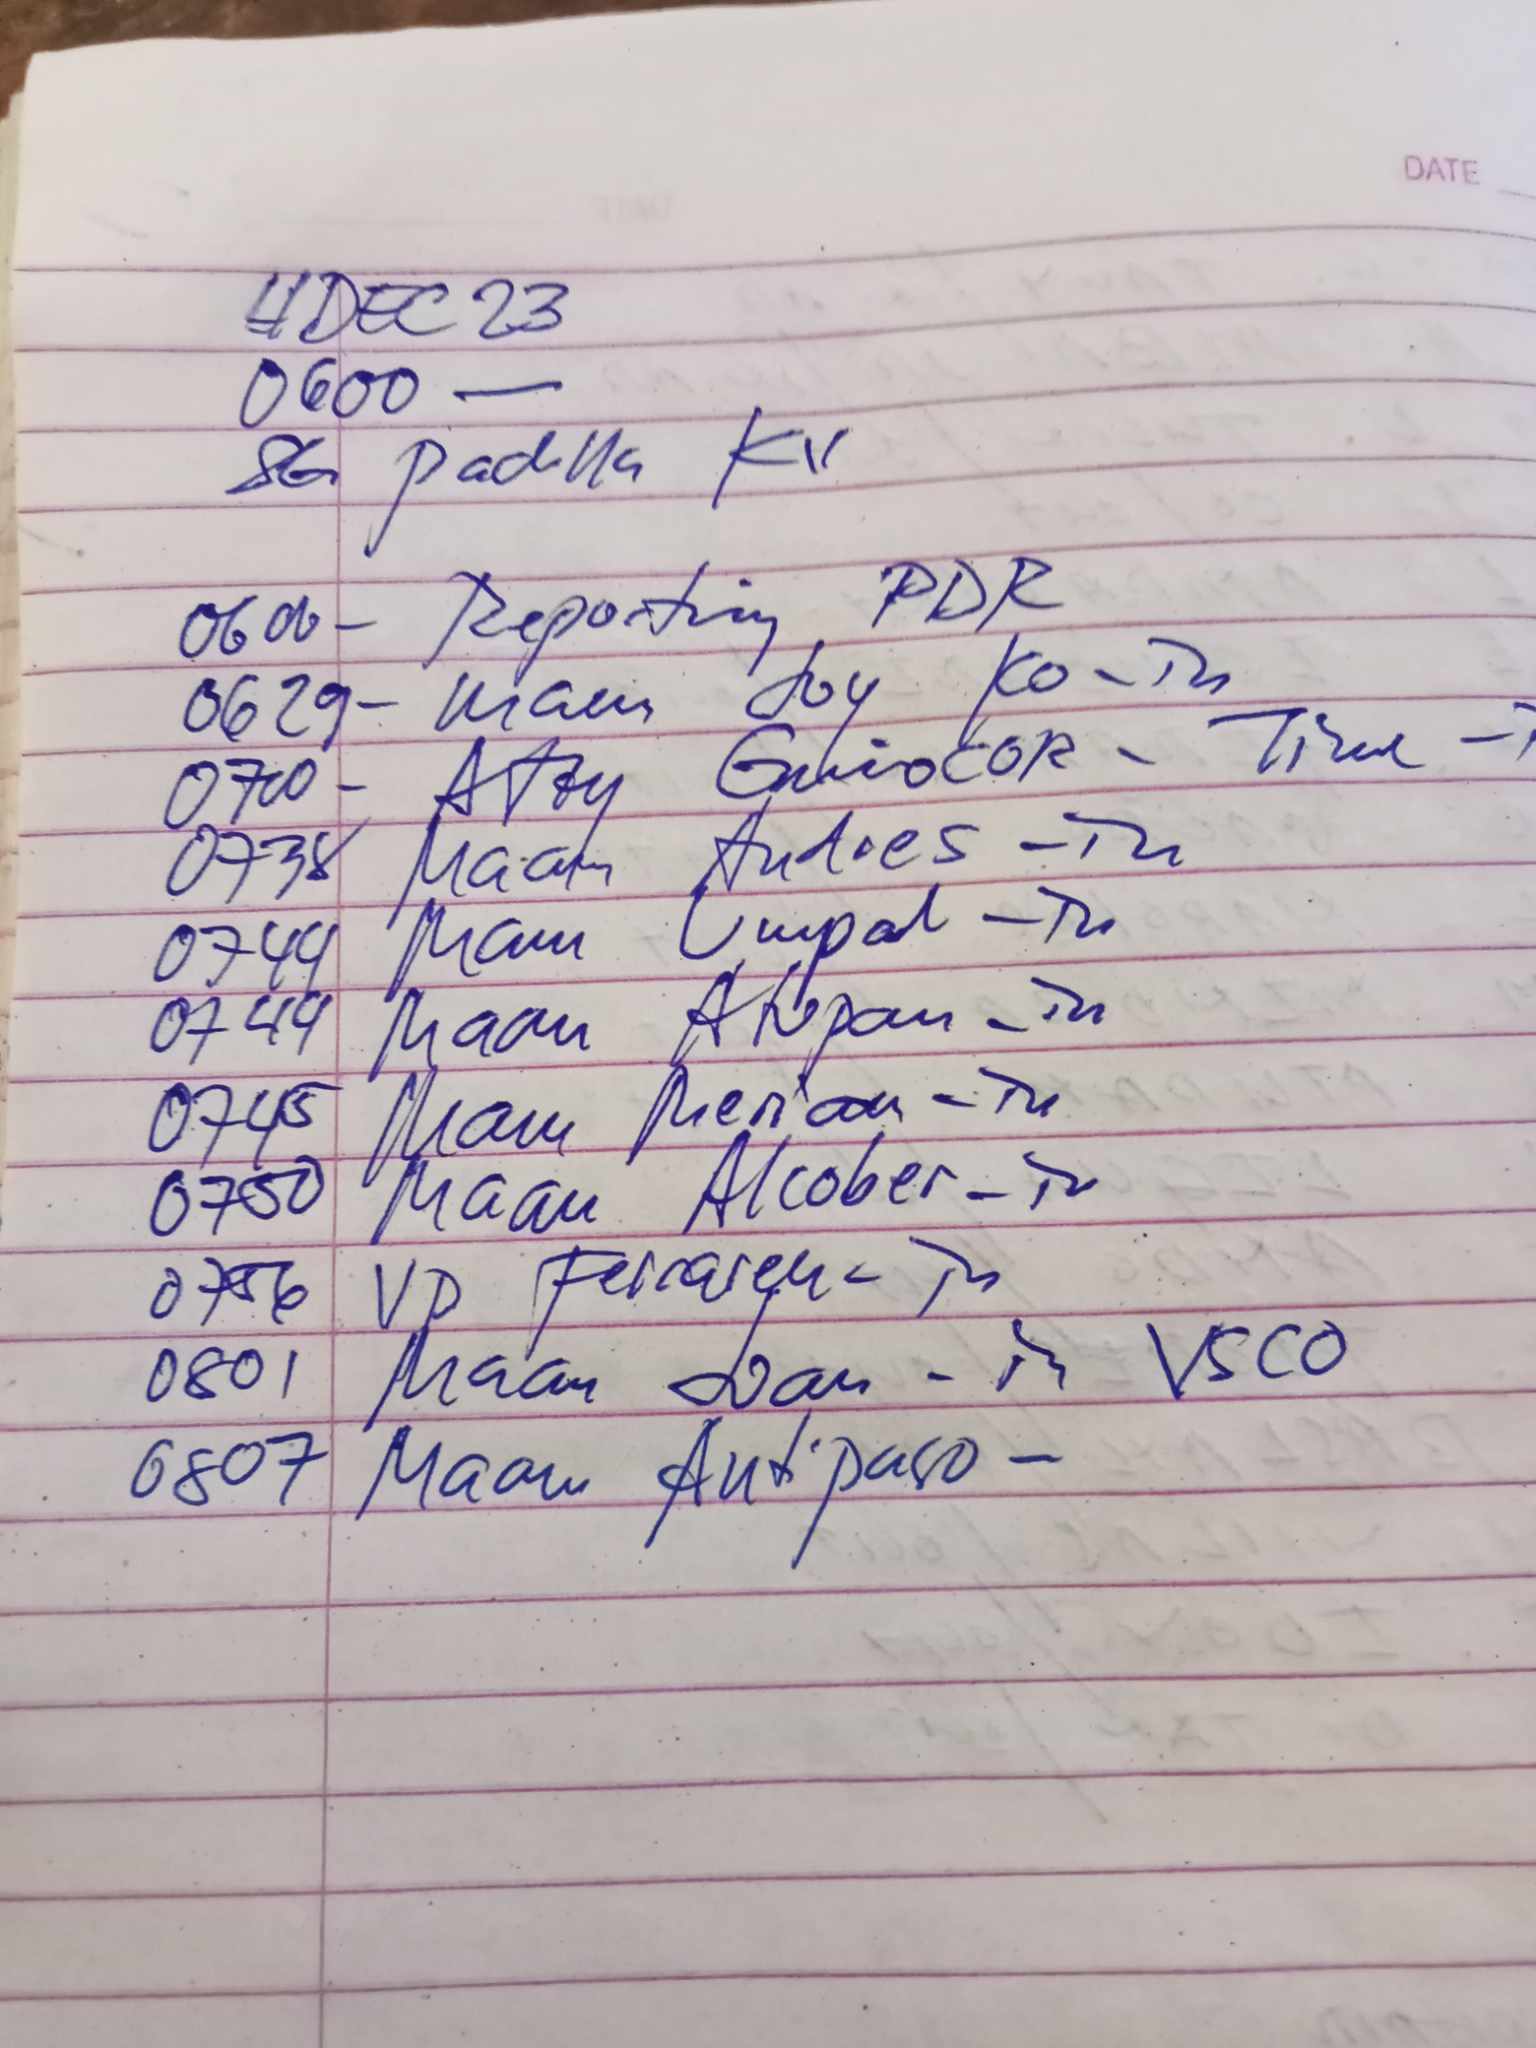 DATE
4DEC23
0600 —
SG Padilla KV
0600 - Reporting PDR
0629 - Maam Joy Ko - In
0700 - Atty - Time -
0738 Maam Andres - In
0744 Maam Umpad - In
0744 Maam Atopan - In
0745 Maam Meriam - In
0750 Maam Alcober - In
0756 VP Ferraren - In
0801 Maam Joan - in VSCO
0807 Maam Antipaso -